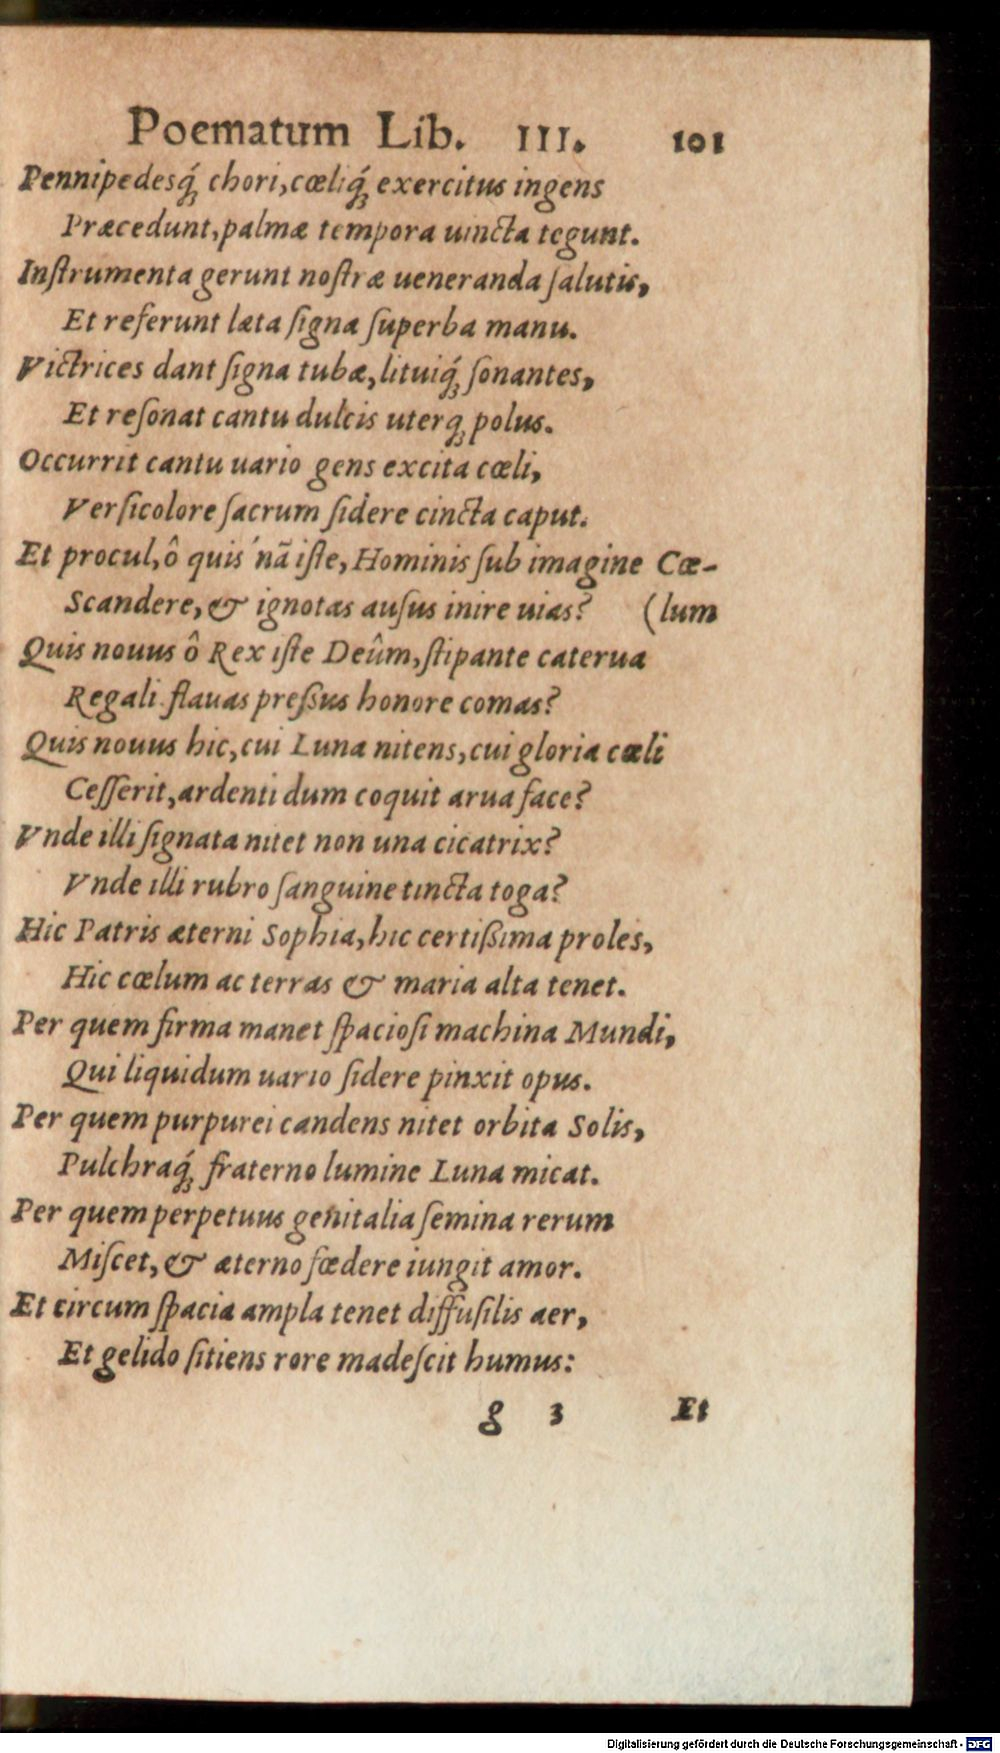 Poematum Lib. III. 101
Pennipedesq́; chori, cœliq́; exercitus ingens
Præcedunt, palmæ tempora uincta tegunt.
Inſtrumenta gerunt noſtræ ueneranda ſalutis,
Et referunt læta ſigna ſuperba manu.
Victrices dant ſigna tubæ, lituiq́; ſonantes,
Et reſonat cantu dulcis uterq; polus.
Occurrit cantu uario gens excita cœli,
Verſicolore ſacrum ſidere cincta caput.
Et procul, ô quis nã iſte, Hominis ſub imagine Cœ-
Scandere, & ignotas auſus inire uias? (lum
Quis nouus ô Rex iſte Deûm, ſtipante caterua
Regali flauas preſſus honore comas?
Quis nouus hic, cui Luna nitens, cui gloria cœli
Ceſſerit, ardenti dum coquit arua face?
Vnde illi ſignata nitet non una cicatrix?
Vnde illi rubro ſanguine tincta toga?
Hic Patris æterni Sophia, hic certißima proles,
Hic cœlum ac terras & maria alta tenet.
Per quem firma manet ſpacioſi machina Mundi,
Qui liquidum uario ſidere pinxit opus.
Per quem purpurei candens nitet orbita Solis,
Pulchraq́; fraterno lumine Luna micat.
Per quem perpetuus genitalia ſemina rerum
Miſcet, & æterno fœdere iungit amor.
Et circum ſpacia ampla tenet diffuſilis aer,
Et gelido ſitiens rore madeſcit humus:
g 3 Et
Digitalisierung gefördert durch die Deutsche Forschungsgemeinschaft - DFG